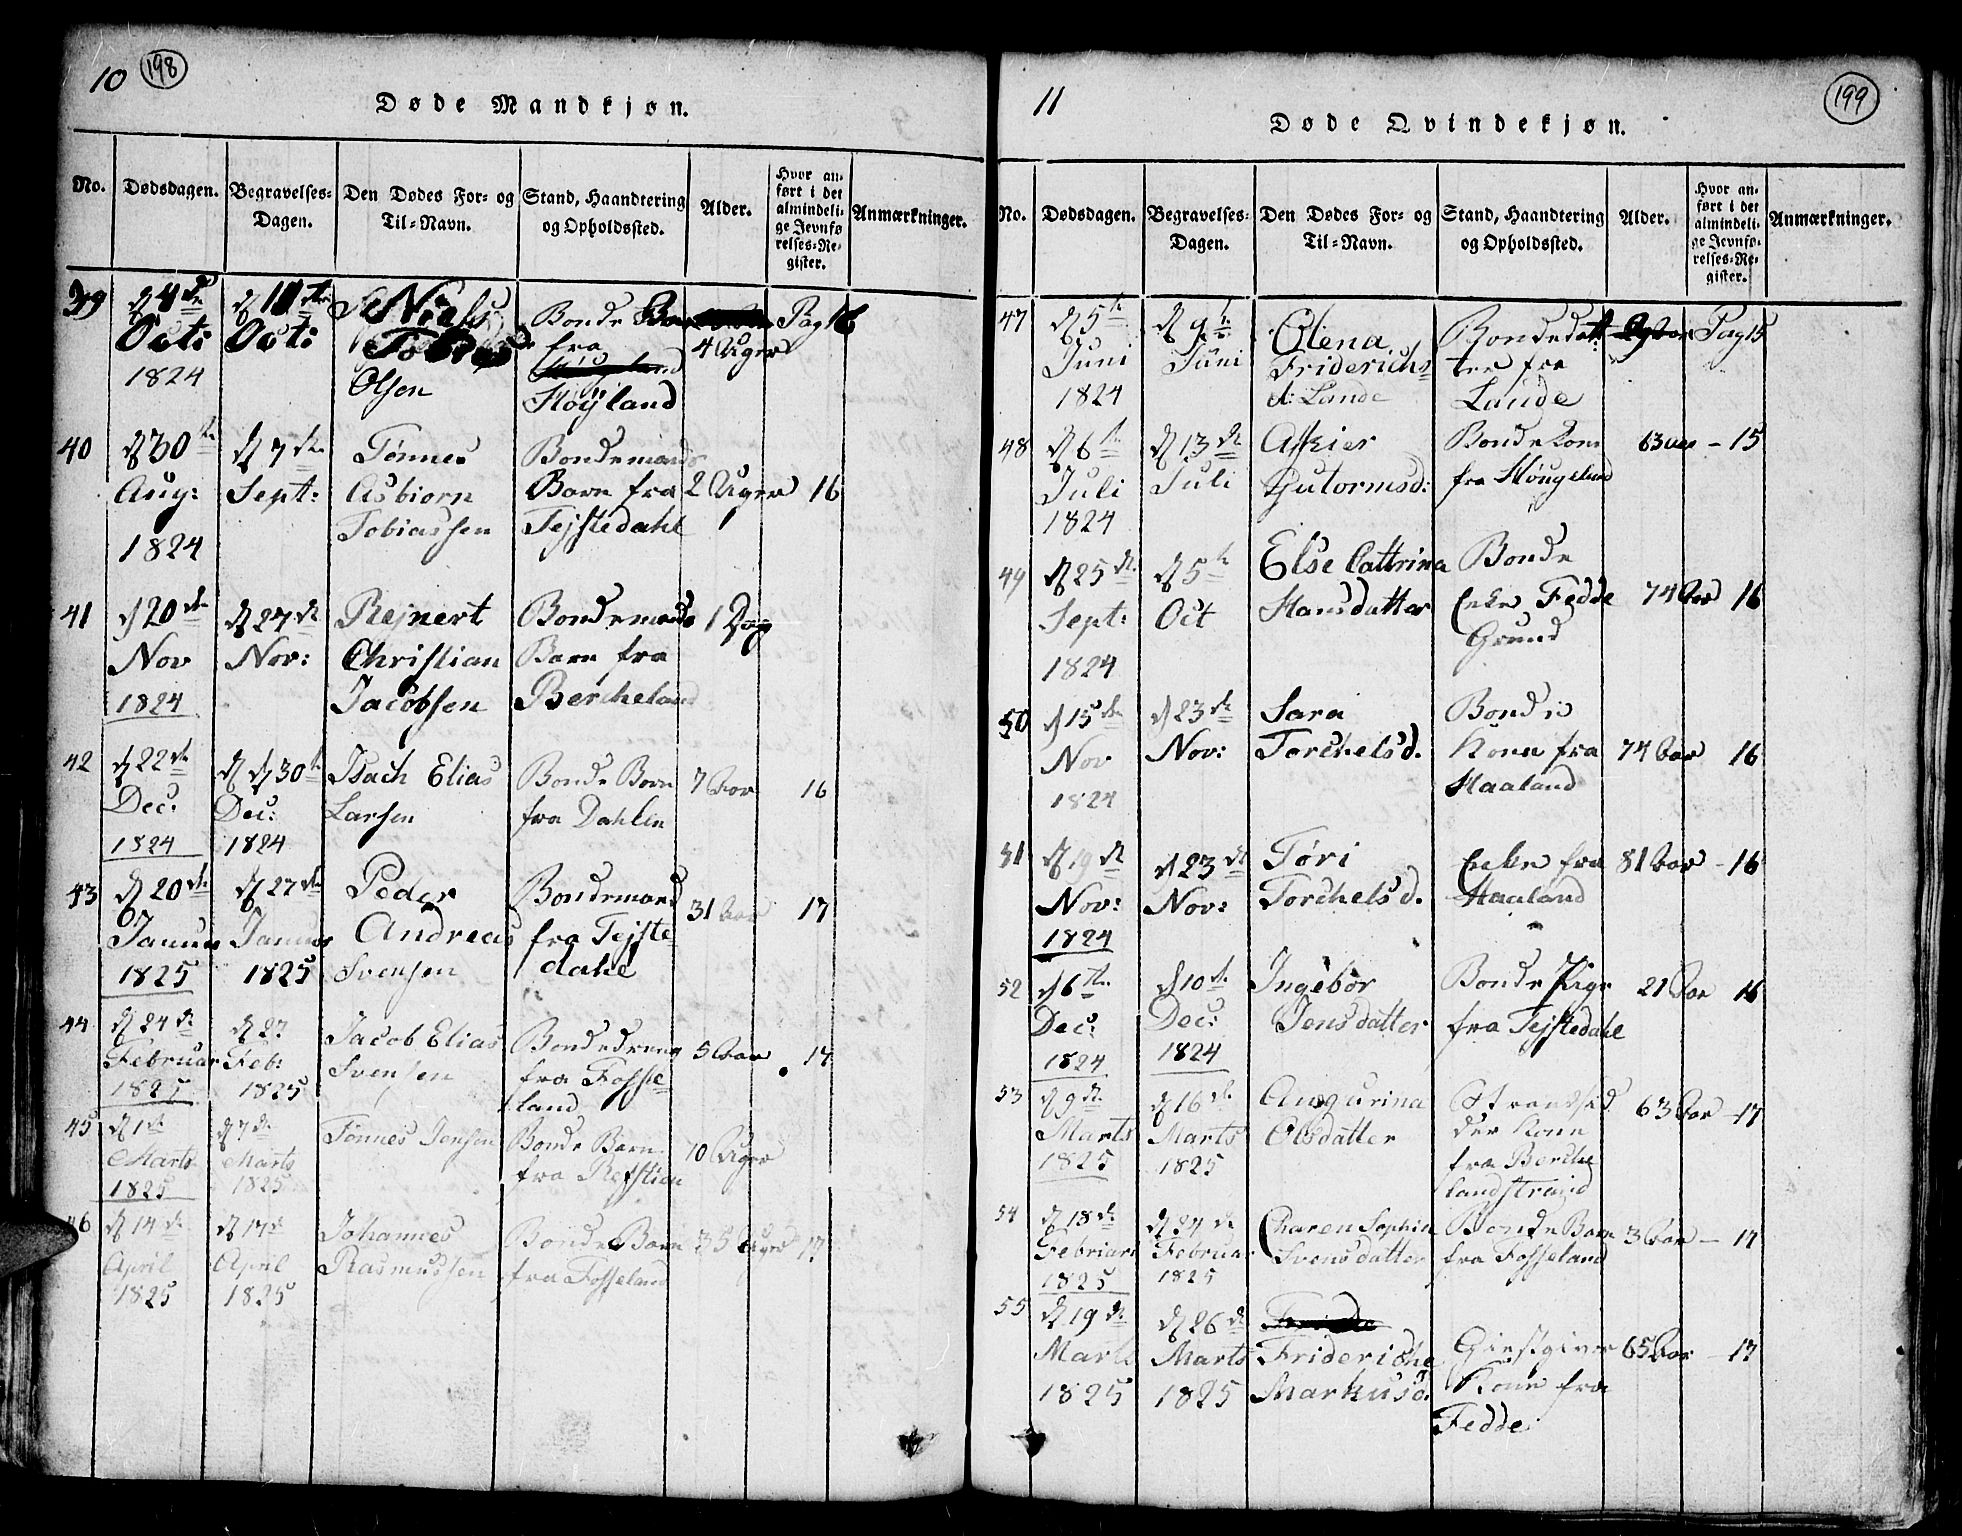 10 198
Døde Mandkjøn.
No. Dødsdagen. Begravelses-Dagen. Den Dødes For- og Til-Navn. Stand, Haandtering og Opholdssted. Alder. Hvor anført i det almindelige Jevnførelses-Register. Anmærkninger.
39 d 4de Oct: 1824
Oct:
Niels Tobias Olsen
Bonde
fra
Høyland
4 Uger
Pag 16
40 d 30te Aug: 1824
d 7de Sept:
Tønnes Asbiorn Tobiassen
Bondemands Barn fra Tejstedahl
2 Uger
16
41 d 20de Nov 1824
d 27de Nov:
Rejnert Christian Jacobsen
Bondemands Barn fra Bercheland
1 Dag
42 d 22de Dec: 1824
d 30te Dec: 1824
Isach Elias Larsen
Bonde Barn fra Dahlen
7 Aar
16
43 d 20de Januar 1825
d 27de Januar 1825
Peder Andreas Svensen
Bondemand fra Tejstedahl
31 Aar
17
44 d 24de Februar 1825
d 27 Feb: 1825
Jacob Elias Svensen
Bondedreng fra Fosseland
5 Aar
17
45 d 1te Marts 1825
d 7de Marts 1825
Tønnes Jensen
Bonde Barn fra Refstien
10 Uger
46 d 14de April 1825
d 17d April 1825
Johannes Rasmussen
Bonde Barn fra Fosseland
35 Uger
17
11 199
Døde Qvindekjøn.
No. Dødsdagen. Begravelses-Dagen. Den Dødes For- og Til-Navn. Stand, Haandtering og Opholdssted. Alder. Hvor anført i det almindelige Jevnførelses-Register. Anmærkninger.
47 d 5te Juni 1824
d 9te Juni
Olena Friderichsd: Lande
Bondedatter fra Lande
Pag 15
48 d 6te Juli 1824
d 13de Juli
Askier Gutormsd:
Bondekone fra Høugeland
63
15
49 d 25de Sept: 1824
d 5te Oct
Else Cattrina Hansdatter
Bonde Enke Fedde Grund
74 Aar
16
50 d 15de Nov 1824
d 23de Nov:
Sara Torchelsd.
Bonde Kone fra Haaland
74 Aar
16
51 d 19de Nov: 1824
d 23de Nov:
Tøri Torchelsd.
Enke fra Haaland
81 Aar
16
52 d 6te Dec: 1824
d 10de Dec: 1824
Ingebor Jensdatter
Bonde Pige fra Tejstedahl
21 Aar
16
53 d 9de Marts 1825
d 16de Marts 1825
Angurina Olsdatter
Strandsidder Kone fra Berchelandstrand
63 Aar
17
54 d 18de Februar 1825
d 24de Februar 1825
Charen Sophia Svensdatter
Bonde Barn fra Fosseland
3 Aar
17
55 d 19de Marts 1825
d 26de Marts 1825
Frideriche Markusd.
Giestgiver Kone fra Fedde
65 Aar
17